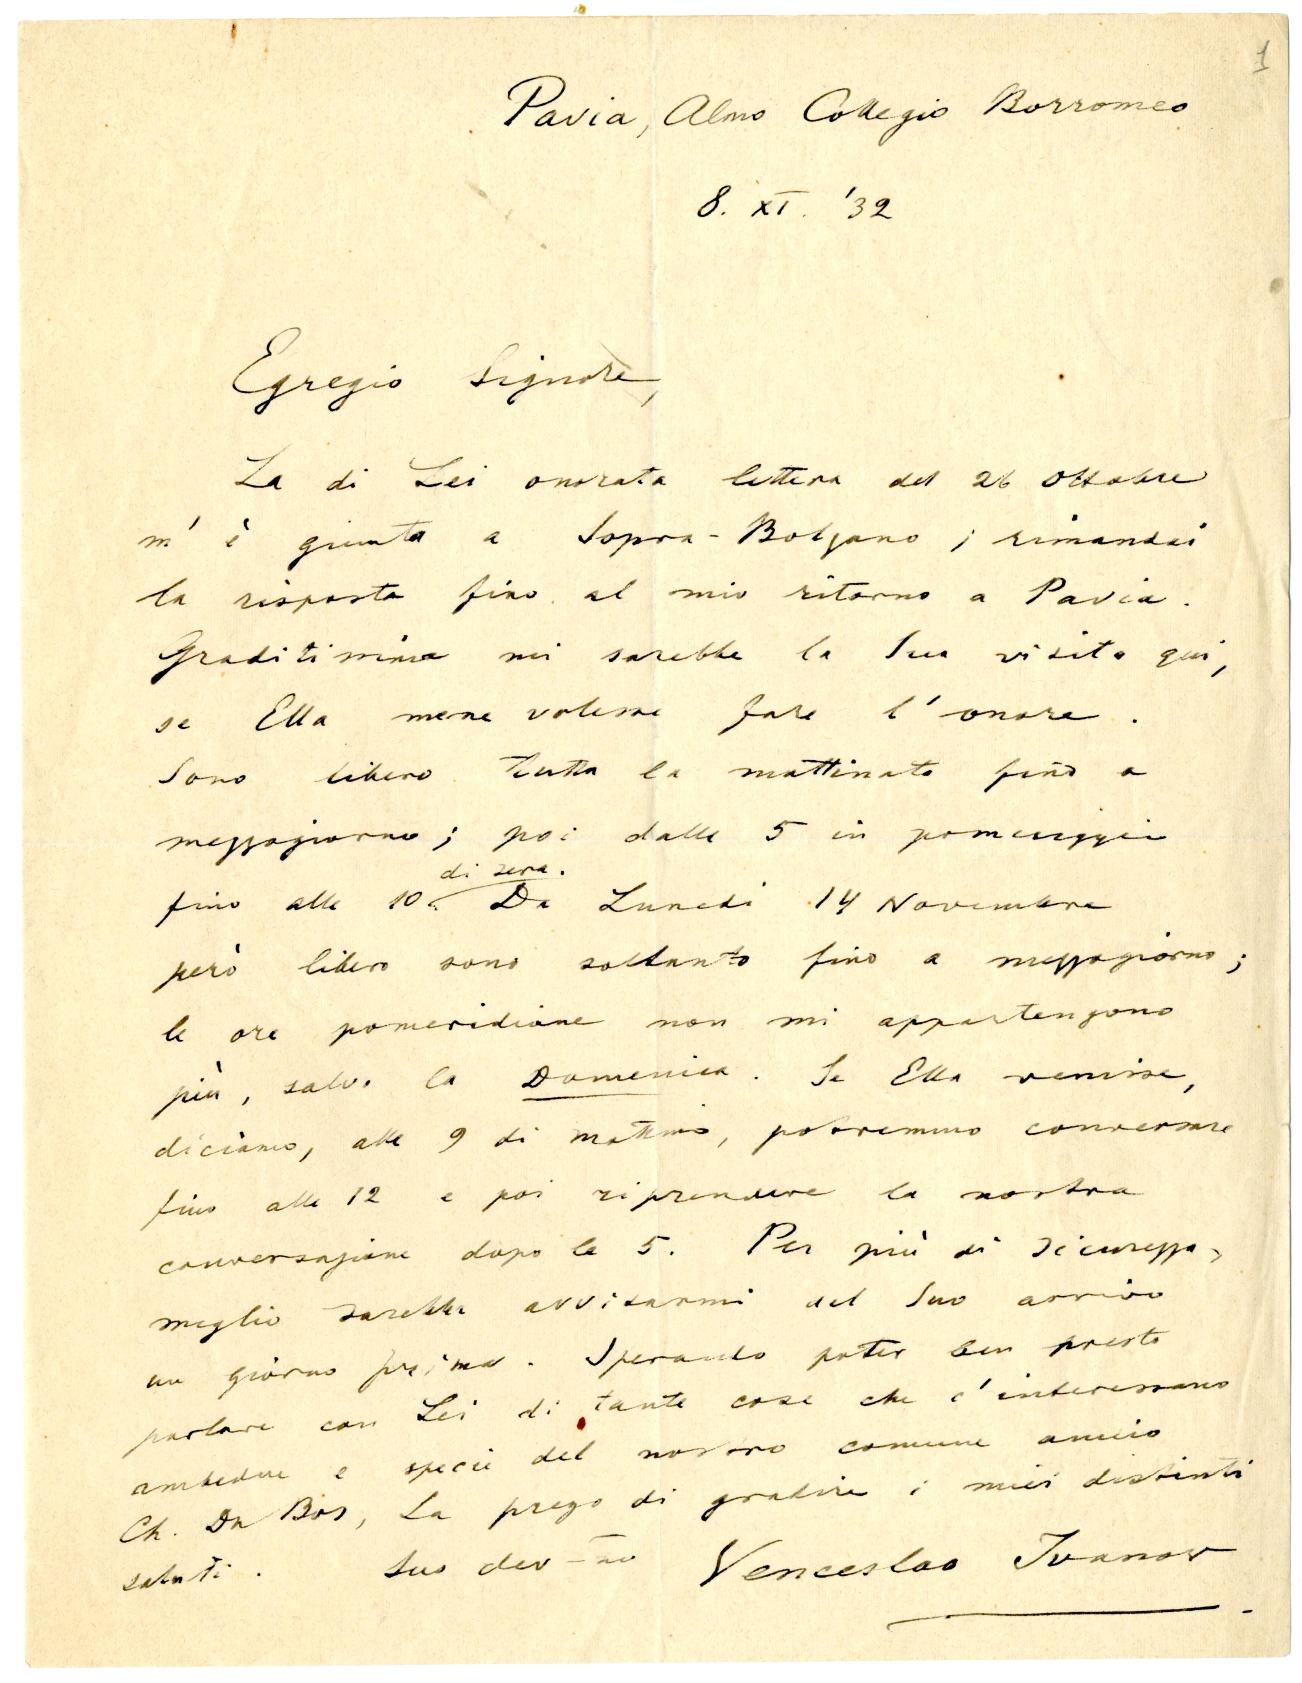 1
Pavia, Almo Collegio Borromeo
8. XI. '32
Egregio Signore,
La di Lei onorata lettera del 26 Ottobre
m'è giunta a Sopra-Bolzano; rimandai
la risposta fino al mio ritorno a Pavia.
Graditissima mi sarebbe la Sua visita qui,
se Ella mene volesse fare l'onore.
Sono libero tutta la mattinata fino a
mezzogiorno; poi dalle 5 in pomeriggio
di sera.
fino alle 10 Da Lunedi 14 Novembre
però libero sono soltanto fino a mezzogiorno;
le ore pomeridiane non mi appartengono
più, salvo la Domenica. Se Ella venisse,
diciamo, alle 9 di mattino, potremmo conversare
fino alle 12 e poi riprendere la nostra
conversazione dopo le 5. Per più di sicurezza,
meglio sarebbe avvisarmi del Suo arrivo
un giorno prima. Sperando poter ben presto
parlare con Lei di tante cose che c'interessano
ambedue e specie del nostro comune amico
Ch. Du Bos, La prego di gradire i miei distinti
saluti. Suo dev-mo Venceslao Ivanov